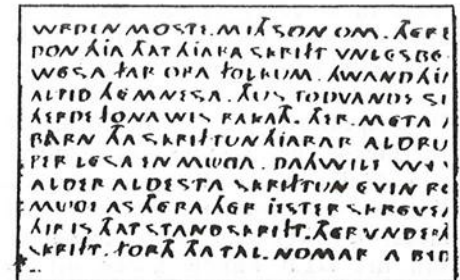 WRDEN MOSTE. MITH SON OM. THERE
DON HIA THAT HIARA SKRIFT VNLESBE
WESA FAR ORA FOLKUM. HWAND HIA
ALTID HEMNESA. THUS
WIS RAKATH. THER. META
BARN THA SKRIFTUN HIARAR ALDRU
LESA EN MUGA. DAHWILE
ALDER ALDESTA SKRIFTUN EVIN
MUGE AS THERA THER JESTER SKREVE
HIR IS THAT STANDSKRIFT. THERVNDER
SKRIFT. FORTH THA TAL. NOMAR A BID